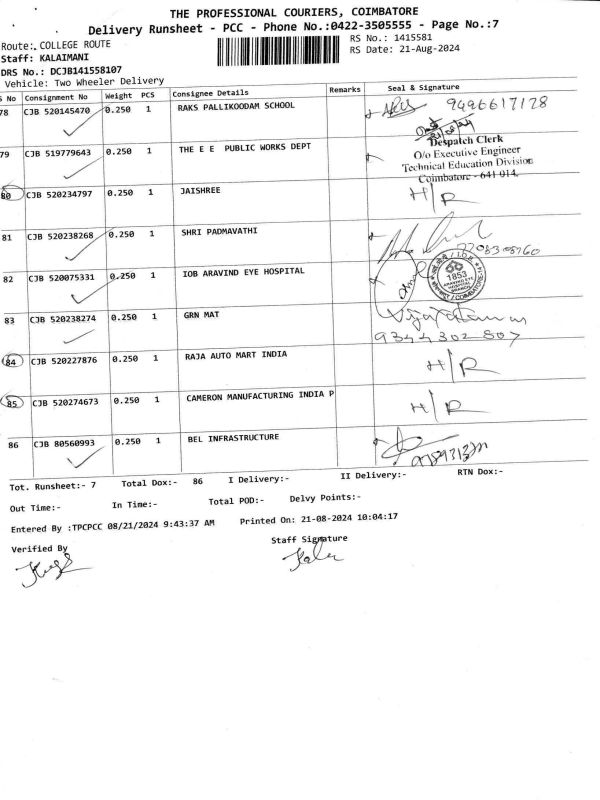 THE PROFESSIONAL COURIERS, COIMBATORE
Delivery Runsheet - PCC - Phone No.:0422-3505555 - Page No.:7
Route:. COLLEGE ROUTE RS No.: 1415581
Staff: KALAIMANI RS Date: 21-Aug-2024
DRS No.: DCJB141558107
Vehicle: Two Wheeler Delivery
S No Consignment No Weight PCS Consignee Details Remarks Seal & Signature
78 CJB 520145470 0.250 1 RAKS PALLIKOODAM SCHOOL 9496617178
79 CJB 519779643 0.250 1 THE E E PUBLIC WORKS DEPT
Despatch Clerk
O/o Executive Engineer
Technical Education Division
Coimbatore - 641 014.
80 CJB 520234797 0.250 1 JAISHREE H/R
81 CJB 520238268 0.250 1 SHRI PADMAVATHI
82 CJB 520075331 0.250 1 IOB ARAVIND EYE HOSPITAL
1853
ARAVIND EYE
HOSPITAL
BRANCH
83 CJB 520238274 0.250 1 GRN MAT
9344302807
84 CJB 520227876 0.250 1 RAJA AUTO MART INDIA H/R
85 CJB 520274673 0.250 1 CAMERON MANUFACTURING INDIA P H/R
86 CJB 80560993 0.250 1 BEL INFRASTRUCTURE
Tot. Runsheet:- 7 Total Dox:- 86 I Delivery:- II Delivery:- RTN Dox:-
Out Time:- In Time:- Total POD:- Delvy Points:-
Entered By :TPCPCC 08/21/2024 9:43:37 AM Printed On: 21-08-2024 10:04:17
Verified By Staff Signature